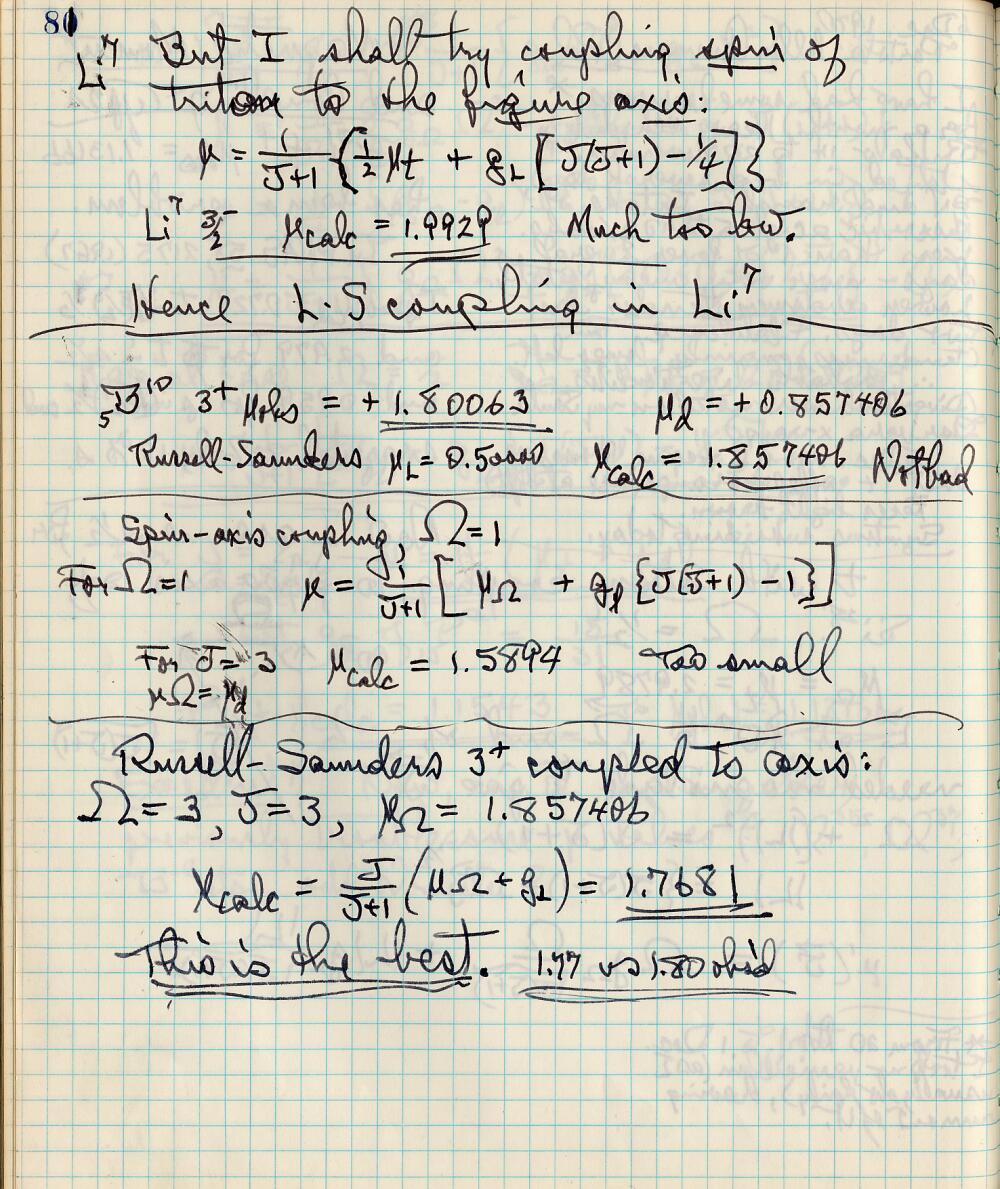 81
Li⁷ But I shall try coupling spin of
triton to the figure axis:
μ = 1/(J+1) {1/2 μt + gL [J(J+1) − 1/4]}
Li⁷ 3/2⁻ μcalc = 1.9929 Much too low.
Hence L·S coupling in Li⁷
₅B¹⁰ 3⁺ μobs = + 1.80063 μd = +0.857406
Russell-Saunders μL = 0.50000 μcalc = 1.857406 Not bad
Spin-axis coupling, Ω=1
For Ω=1 μ = 1/(J+1) [μΩ + gL {J(J+1) − 1}]
For J = 3 μcalc = 1.5894 Too small
μΩ = μd
Russell-Saunders 3⁺ coupled to axis:
Ω = 3, J = 3, μΩ = 1.857406
μcalc = J/(J+1) (μΩ + gL) = 1.7681
This is the best. 1.77 vs 1.80 obs'd